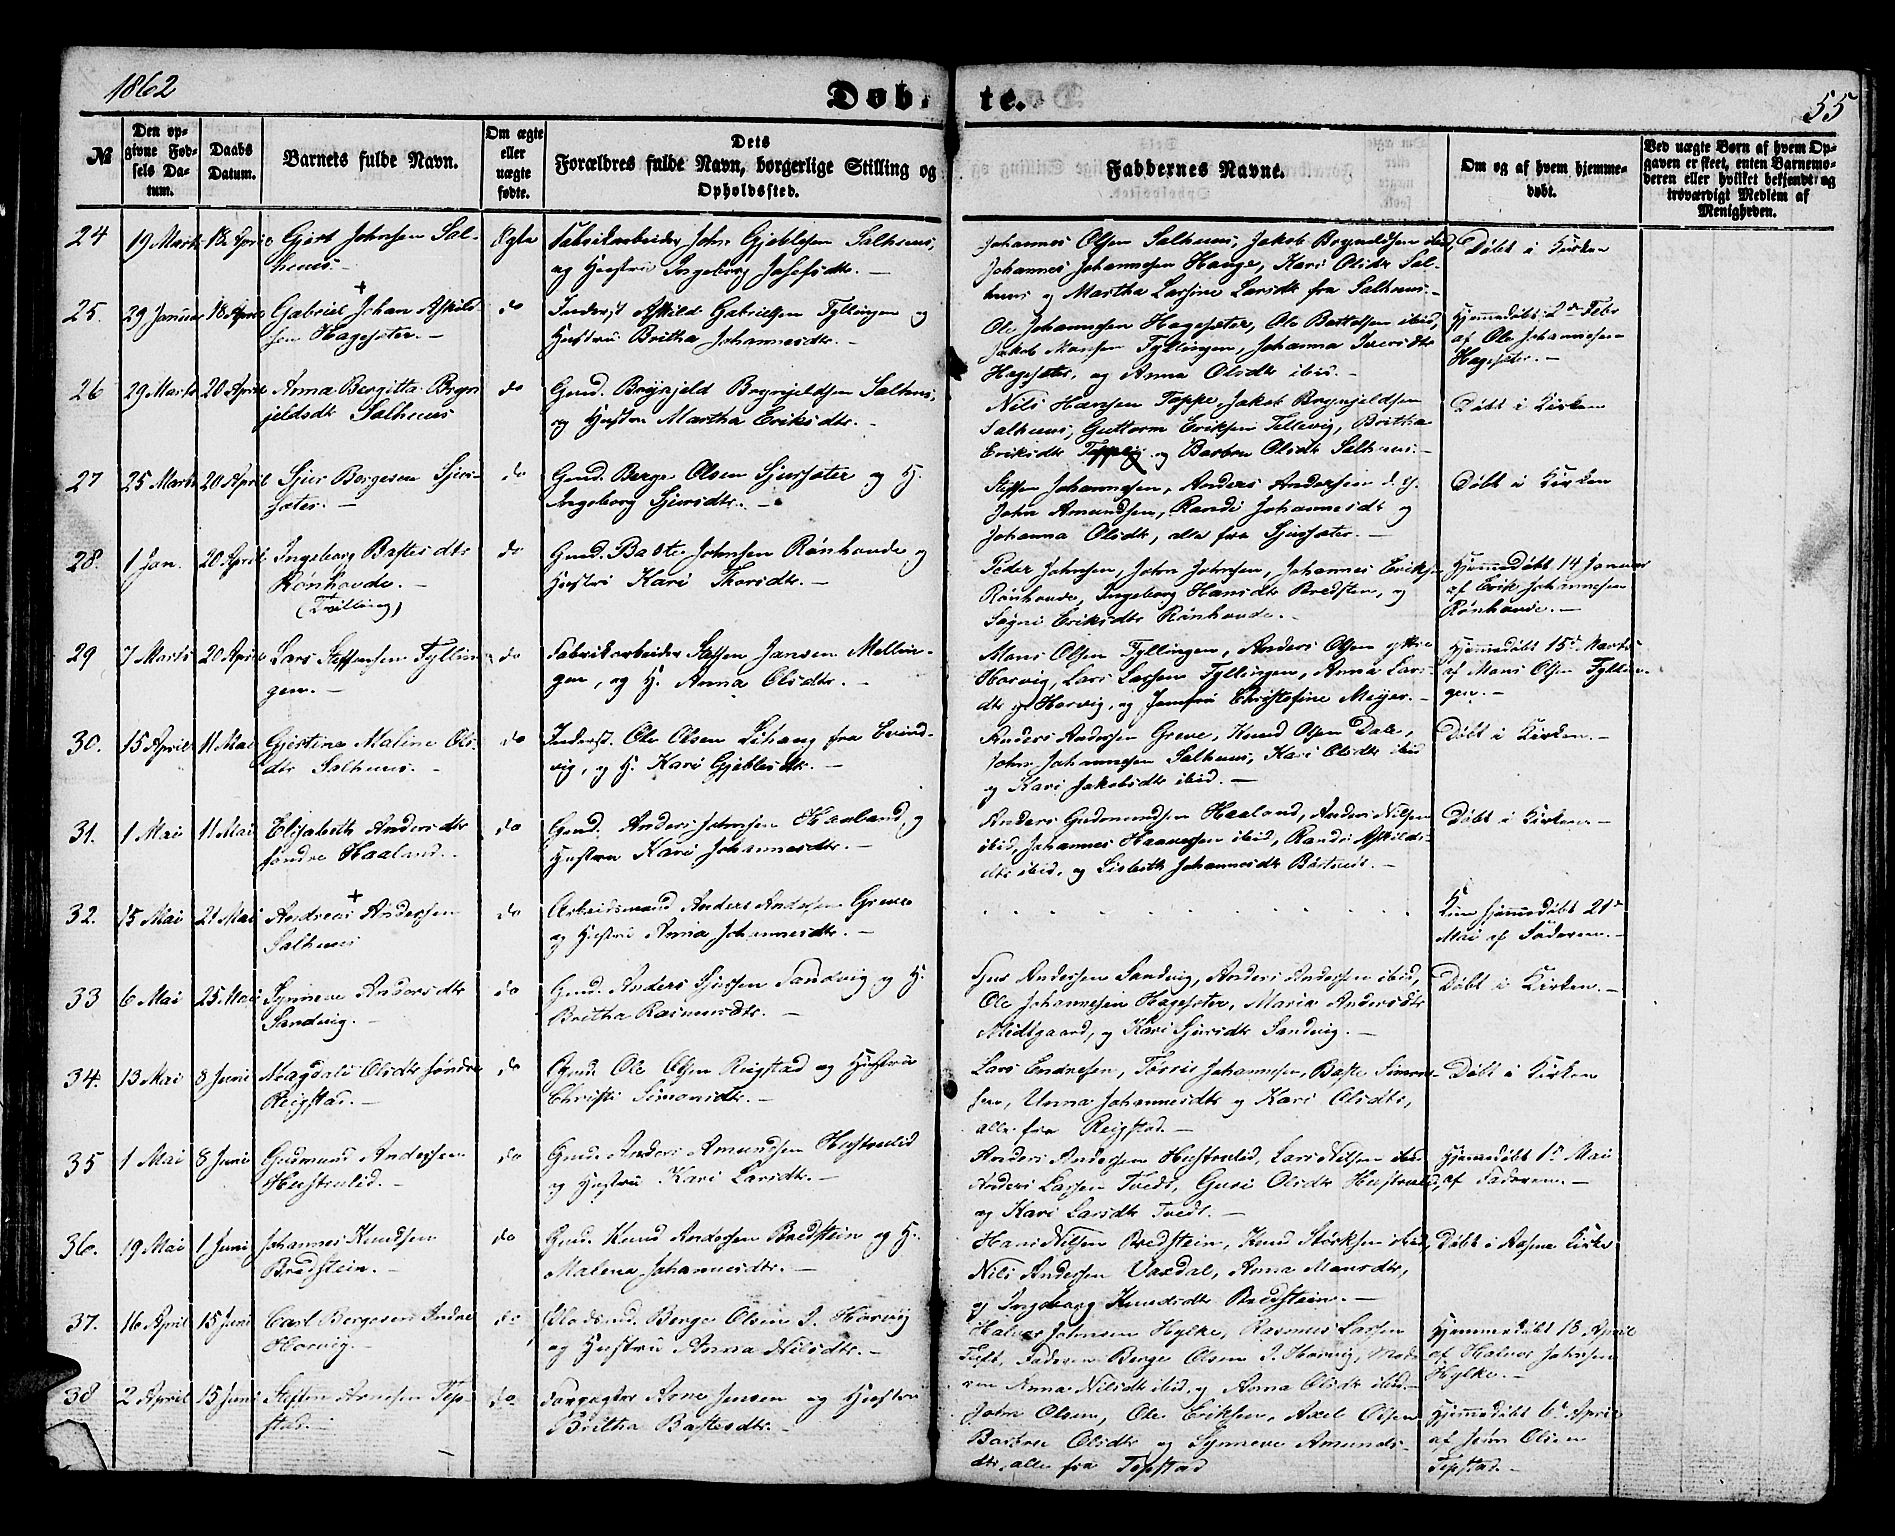 1862
Døbte.
55
№
Den opgivne Fødsels Datum.
Daabs Datum.
Barnets fulde Navn.
Om ægte eller uægte fødte.
Dets Forældres fulde Navn, borgerlige Stilling og Opholdssted.
Faddernes Navne.
Om og af hvem hjemmedøbt.
Ved uægte Børn af hvem Opgaven er skeet, enten Barnemoderen eller hvilket bekjendt og troværdigt Medlem af Menigheden.
24 19 Marts 18 April Gjert Johnsen Sal- Ægte Fabrikarbeider John Gjeblesen Salhuus, Johannes Olsen Salhuus, Jakob Brynildsen ibid, Døbt i Kirken
huus.- og Hustru Ingeborg Josefsdtr. - Johannes Johannesen Hauge, Kari Olsdtr Sal-
huus og Martha Larsine Larsdtr fra Salhuus.-
25. 29 Januar 18 April Gabriel Johan Askild- do Inderst Askild Gabrielsen Fyllingen og Ole Johannesen Hagesæter, Ole Bottolsen ibid, Hjemmedøbt 2den Febr
sen Hagesæter.- Hustru Britha Johannesdtr. - Jakob Monsen Fyllingen, Johanna Iversdtr af Ole Johannesen
Hagesæter, og Anna Olsdtr ibid.- Hagesæter.-
26 29 Marts 20 April Anna Bergitta Bryn- do Gmd. Brynjeld Brynjeldsen Salhuus, Nils Hansen Toppe, Jakob Brynjeldsen Døbt i Kirken
jeldsdtr Salhuus og Hustru Martha Eriksdtr.- Salhuus, Guttorm Eriksen Tellevig, Britha
Eriksdtr og Barbra Olsdtr Salhuus.-
27 25 Marts 20 April Sjur Bergesen Sjur- do Gmd. Berge Olsen Sjursæter og H. Steffen Johannesen, Anders Andersen d. y. Døbt i Kirken
sæter.- Ingeborg Sjursdtr. - John Amundsen, Randi Johannesdtr og
Johanna Olsdtr, alle fra Sjursæter.-
28. 1 Jan. 20 April Ingeborg Bastesdtr do Gmd. Baste Johnsen Rønhovde og Peder Johnsen, John Johnsen, Johannes Eriksen Hjemmedøbt 14 Januar
Rønhovde.- Hustru Kari Thorsdtr. - Rønhovde, Ingeborg Hansdtr Bredsten, og af Erik Johannesen
(Tvilling) Sogni Eriksdtr Rønhovde.- Rønhovde.-
29 7 Marts 20 April Lars Steffensen Fyllin- do Fabrikarbeider Steffen Jansen Mellin- Mons Olsen Fyllingen, Anders Olsen yttre Hjemmedøbt 15de Marts
gen.- gen, og H. Anna Olsdtr. - Horvig, Lars Larsen Fyllingen, Anna Lars- af Mons Olsen Fyllin-
dtr y. Horvig, og Jomfru Christofine Meijer.- gen.-
30. 15 April 11 Mai Gjertine Maline Ols- do Inderst. Ole Olsen Lihaug fra Evind- Anders Andersen Greve, Knud Olsen Dale, Døbt i Kirken.-
dtr Salhuus.- vig, og H. Kari Gjeblesdtr. - John Johannesen Salhuus, Kari Olsdtr ibid
og Kari Jakobsdtr ibid.-
31. 1 Mai 11 Mai Elisabeth Andersdtr do Gmd. Anders Johnsen Haaland, og Anders Gudmundsen Haaland, Anders Nilsen Døbt i Kirken.-
søndre Haaland.- Hustru Kari Johannesdtr. - ibid, Johannes Haavesen ibid, Randi Askilds-
dtr ibid, og Lisbeth Johannesdtr Bastvedt.-
32. 15 Mai 21 Mai Andreas Andersen do Arbeidsmand Anders Andersen Greve Kun hjemmedøbt 21de
Salhuus og Hustru Anna Johannesdtr. - Mai af Faderen.-
33 6 Mai 25 Mai Synneve Andersdtr do Gmd. Anders Sjursen Sandvig og H. Sjur Andersen Sandvig, Anders Andersen ibid, Døbt i Kirken.-
Sandvig.- Britha Rasmusdtr. - Ole Johannesen Hagesæter, Maria Andersdtr
Midtgaard, og Kari Sjursdtr Sandvig.-
34. 13 Mai 8 Juni Magdali Olsdtr søndre do Gmd. Ole Olsen Reigstad og Hustru Lars Endresen, Torris Johannesen, Baste Simon- Døbt i Kirken
Reigstad.- Christi Simonsdtr. - sen, Unna Johannesdtr og Kari Olsdtr,
alle fra Reigstad.-
35 1 Mai 8 Juni Gudmund Andersen do Gmd. Anders Amundsen Hustrulid Anders Andersen Hustrulid, Lars Nilsen ibid Hjemmedøbt 1de Mai
Hustrulid.- og Hustru Kari Larsdtr.- Anders Larsen Tvedt, Guri Olsdtr Hustrulid, af Faderen.-
og Kari Larsdtr Tvedt.-
36. 19 Mai 1 Juni Johannes Knudsen do Gmd. Knud Andersen Bredstein og H. Hans Nilsen Bredstein, Knud Størksen ibid, Døbt i Aasene Kirke
Bredstein.- Malena Johannesdtr.- Nils Andersen Vaxdal, Anna Monsdtr,
og Ingeborg Knudsdtr Bredstein.-
37. 16 April 15 Juni Carl Bergesen Indre do Pladsmd. Berge Olsen I. Horvig Halvor Johnsen Hylke, Rasmus Larsen Hjemmedøbt 18 April
Horvig.- og Hustru Anna Nilsdtr.- Tuft, Faderen Berge Olsen I. Horvig, Mode- af Halvor Johnsen
ren Anna Nilsdtr ibid. og Anna Olsdtr ibid.- Hylke.-
38 2 April 15 Juni Steffen Arnesen Tep- do Forpagter Arne Jensen og Hustru John Olsen, Ole Eriksen, Axel Olsen Hjemmedøbt 6de April
stad.- Britha Bastesdtr.- Barbra Olsdtr og Synneve Amunds- af John Olsen
dtr, alle fra Tepstad Tepstad.-